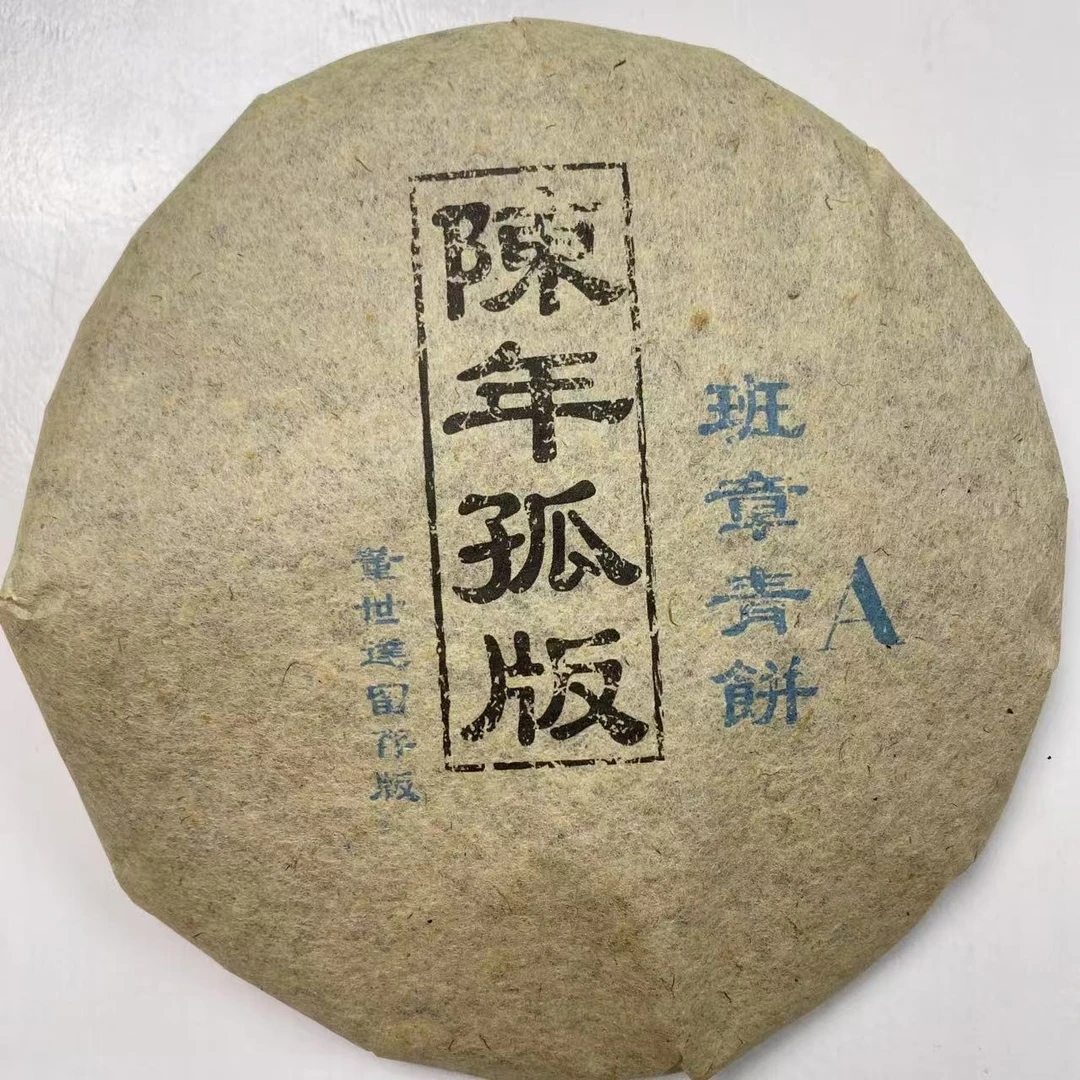 班章青餅
A
陳年孤版
董世存版